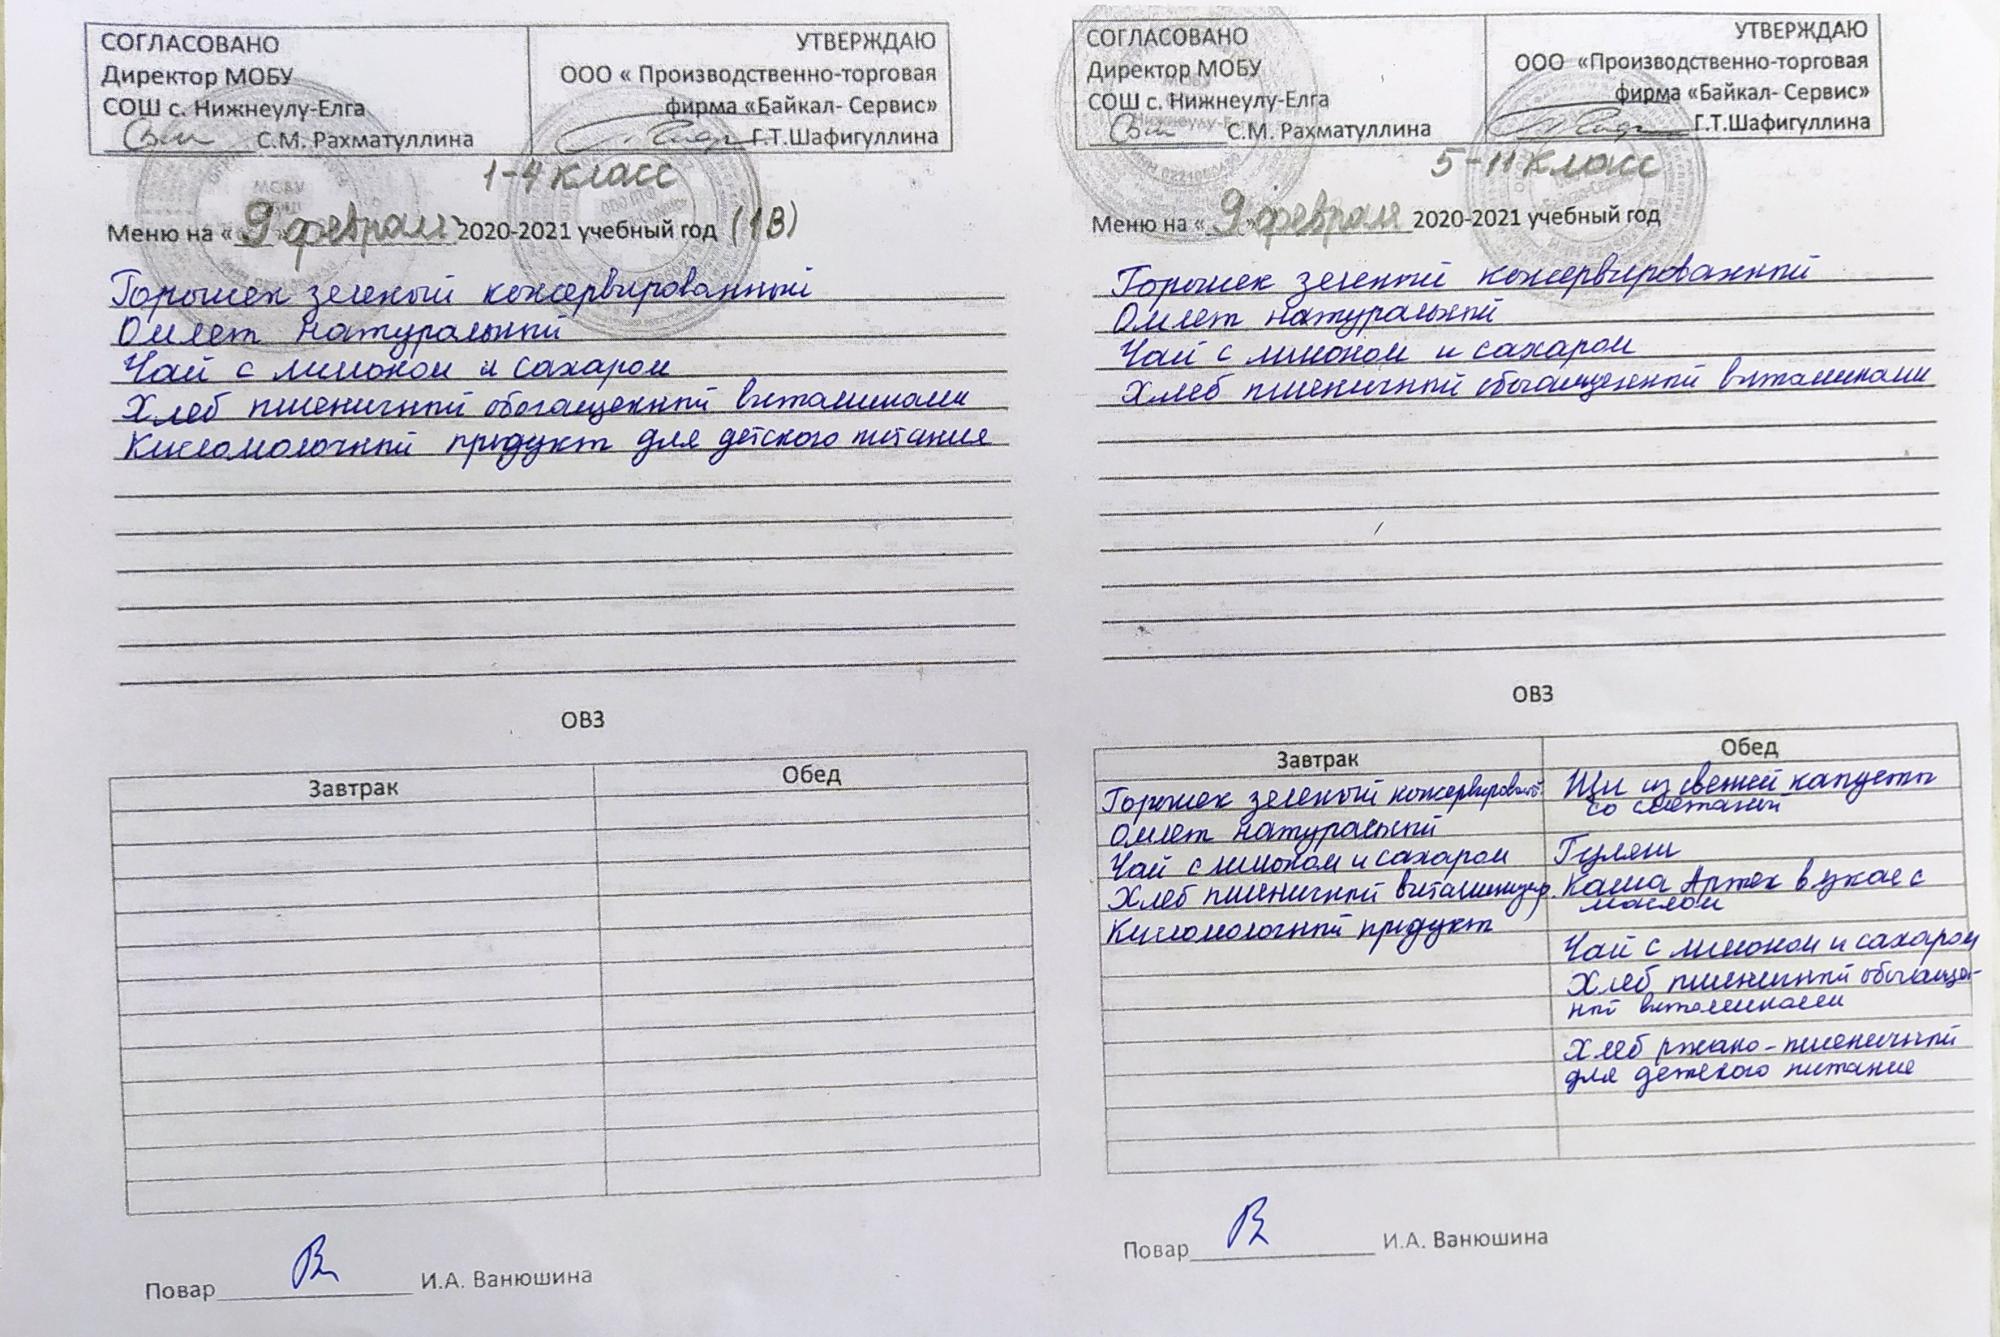 СОГЛАСОВАНО
Директор МОБУ
СОШ с. Нижнеулу-Елга
С.М. Рахматуллина
УТВЕРЖДАЮ
ООО « Производственно-торговая
фирма «Байкал- Сервис»
Г.Т.Шафигуллина
1-4 класс
Меню на « 9 » февраля 2020-2021 учебный год (1В)
Горошек зеленый консервированный
Омлет натуральный
Чай с лимоном и сахаром
Хлеб пшеничный обогащенный витаминами
Кисломолочный продукт для детского питания
ОВЗ
Завтрак
Обед
Повар И.А. Ванюшина
СОГЛАСОВАНО
Директор МОБУ
СОШ с. Нижнеулу-Елга
С.М. Рахматуллина
УТВЕРЖДАЮ
ООО «Производственно-торговая
фирма «Байкал- Сервис»
Г.Т.Шафигуллина
5-11 класс
Меню на « 9 » февраля 2020-2021 учебный год
Горошек зеленый консервированный
Омлет натуральный
Чай с лимоном и сахаром
Хлеб пшеничный обогащенный витаминами
ОВЗ
Завтрак
Горошек зеленый
Омлет натуральный
Чай с лимоном и сахаром
Хлеб пшеничный витаминизир.
Кисломолочный продукт
Обед
Щи из свежей капусты
со сметаной
Гуляш
Каша Артек вязкая с
маслом
Чай с лимоном и сахаром
Хлеб пшеничный обогащен-
ный витаминами
Хлеб ржано-пшеничный
для детского питания
Повар И.А. Ванюшина